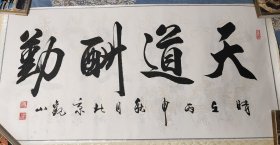 天道酬勤
時在丙申秋月北京觀山